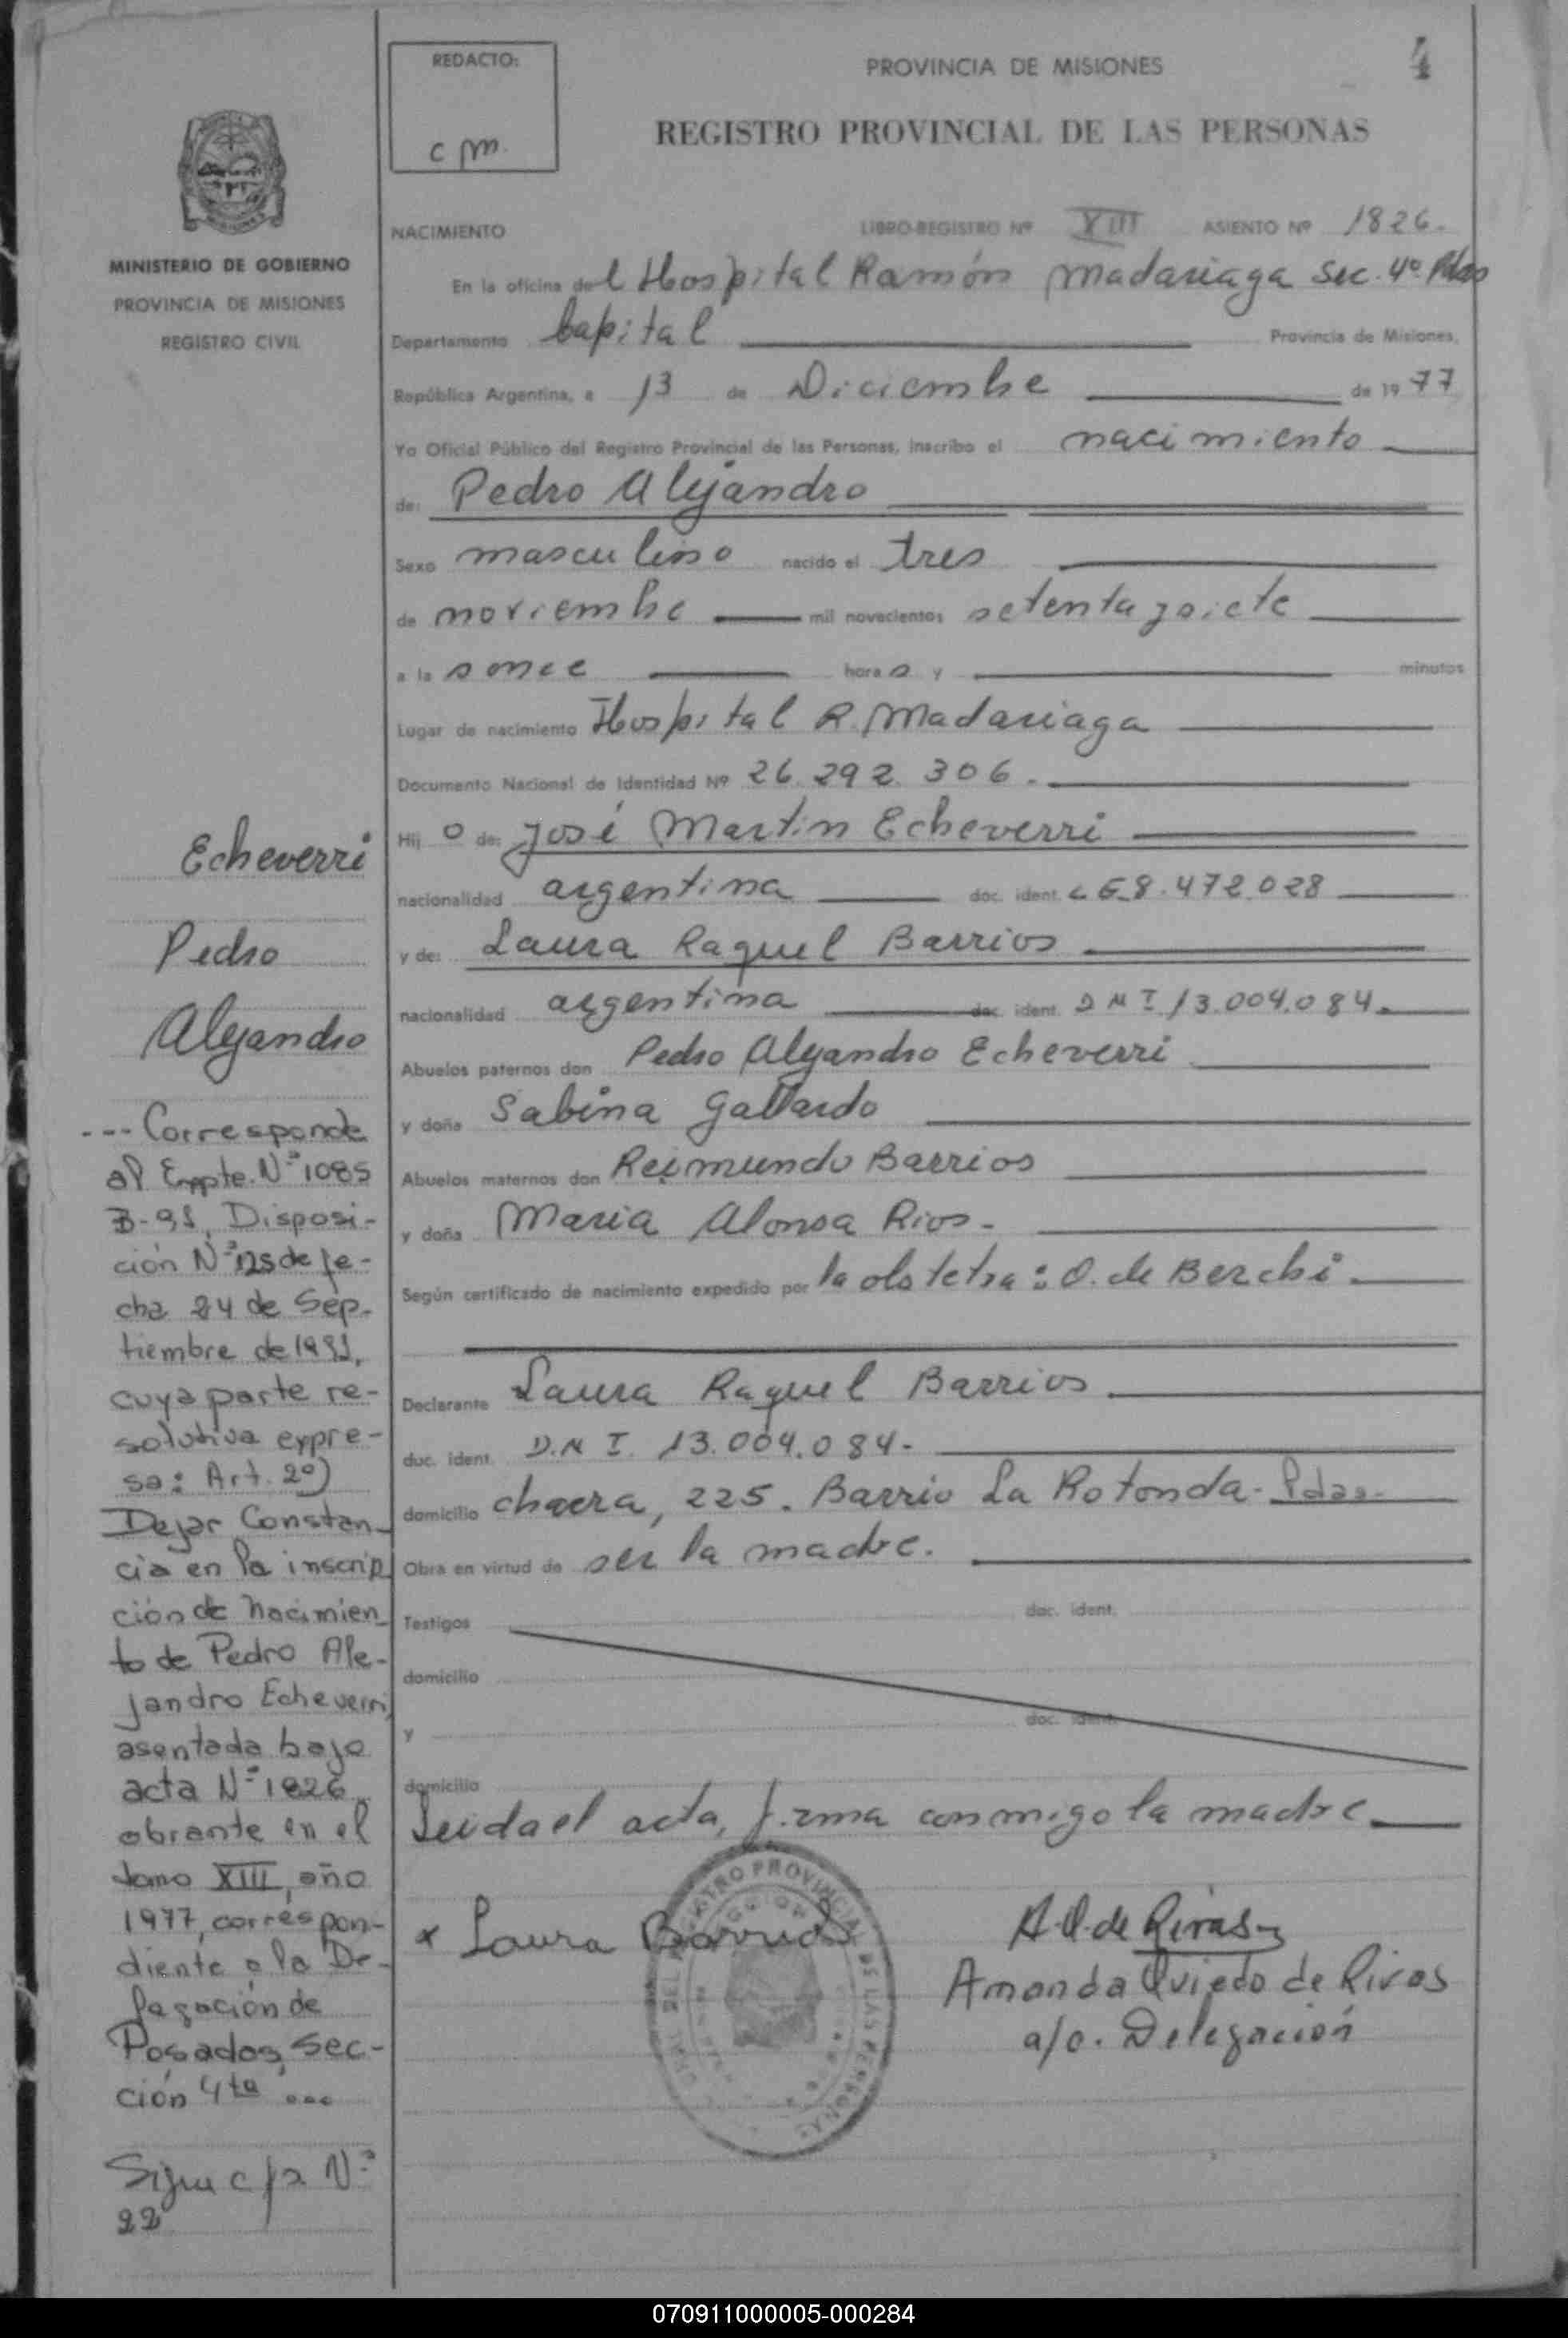 REDACTO:
c m.
PROVINCIA DE MISIONES
4
REGISTRO PROVINCIAL DE LAS PERSONAS
MINISTERIO DE GOBIERNO
PROVINCIA DE MISIONES
REGISTRO CIVIL
NACIMIENTO LIBRO-REGISTRO Nº XIII ASIENTO Nº 1826.
En la oficina del Hospital Ramón Madariaga Sec. 4º Pdas
Departamento Capital Provincia de Misiones,
República Argentina, a 13 de Diciembre de 1977
Yo Oficial Público del Registro Provincial de las Personas, inscribo el nacimiento
de: Pedro Alejandro
Sexo masculino nacido el tres
de noviembre mil novecientos setenta y siete
a las once horas y minutos
Lugar de nacimiento Hospital R. Madariaga
Documento Nacional de Identidad Nº 26.292.306.
Hijo de: José Martin Echeverri
nacionalidad argentina doc. ident. L E 8.472.028
y de: Laura Raquel Barrios
nacionalidad argentina doc. ident. D N I 13.004.084.
Abuelos paternos don Pedro Alejandro Echeverri
y doña Sabina Gallardo
Abuelos maternos don Reimundo Barrios
y doña Maria Alonsa Rios.
Según certificado de nacimiento expedido por la obstetra: O. de Berchi.
Declarante Laura Raquel Barrios
duc. ident. D.N I. 13.004.084.
domicilio chacra, 225. Barrio La Rotonda. Pdas.
Obra en virtud de ser la madre.
Testigos doc. ident.
domicilio
y doc. ident.
domicilio
Leida el acta, firma conmigo la madre
x Laura Barrios
A.O. de Rivas
Amanda Oviedo de Rivas
a/c. Delegación
DEL REGISTRO PROVINCIAL DE LAS PERSONAS
Echeverri
Pedro
Alejandro
--- Corresponde
al Expte. Nº 1085
B-91, Disposi-
ción Nº 125 de fe-
cha 24 de Sep-
tiembre de 1991,
cuya parte re-
solutiva expre-
sa: Art. 2º)
Dejar Constan-
cia en la inscrip
ción de nacimien
to de Pedro Ale-
jandro Echeverri,
asentada bajo
acta Nº 1826,
obrante en el
tomo XIII, año
1977, correspon-
diente a la De-
legación de
Posadas, Sec-
ción 4ta ...
Sigue c/a Nº
22
070911000005-000284